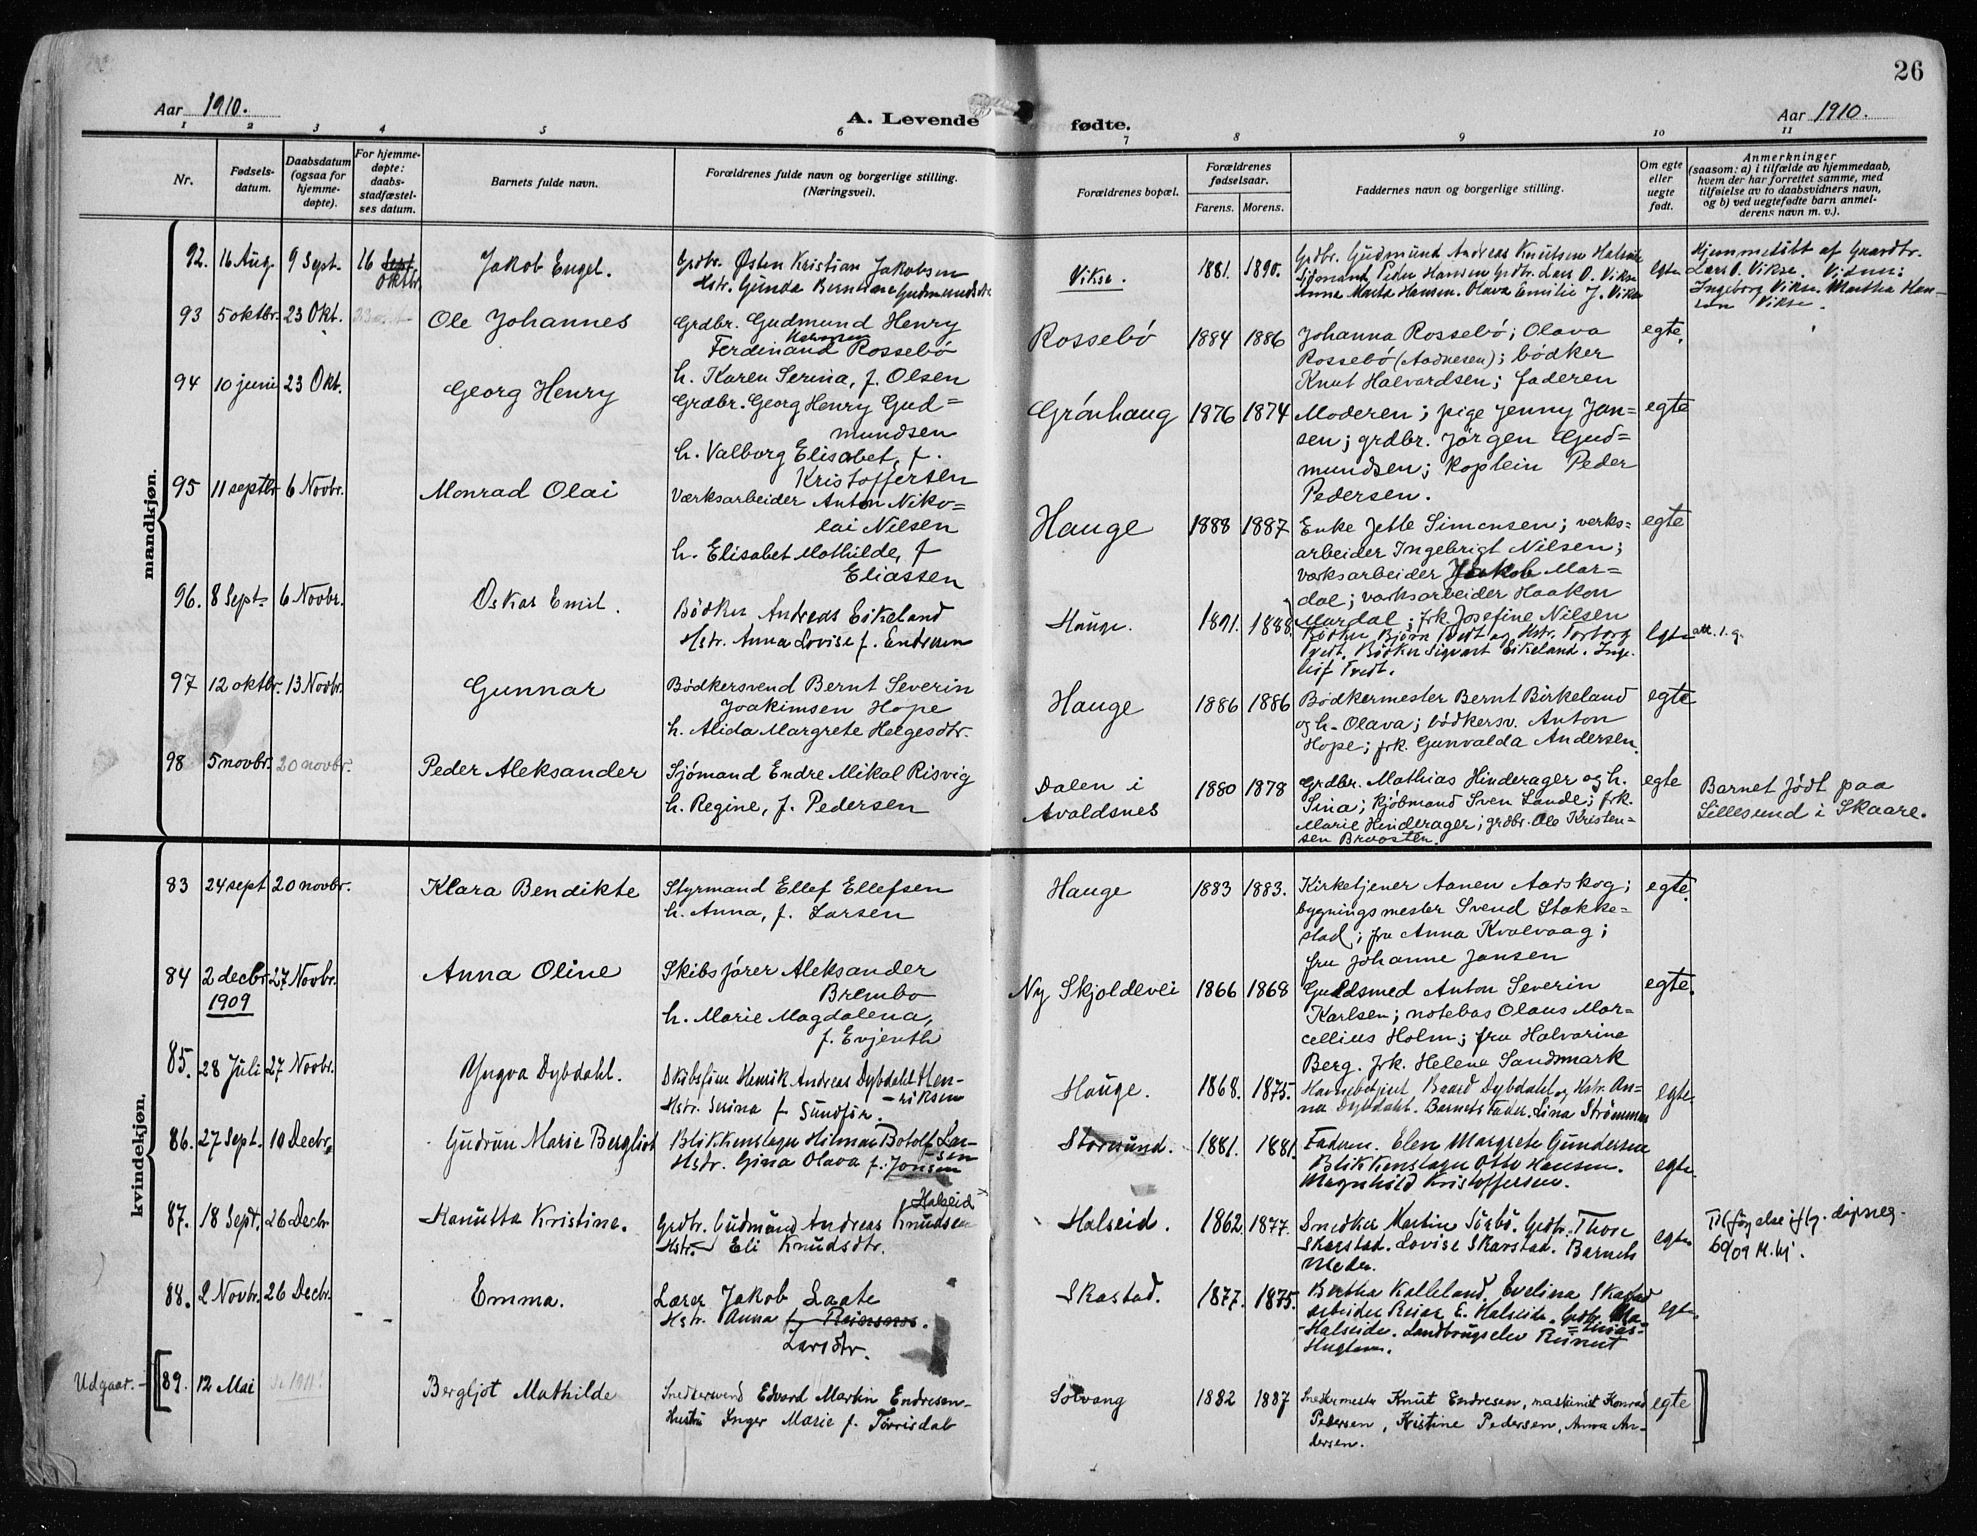 26
Aar 1910.
A. Levende fødte.
Aar 1910.
1 2 3 4 5 6 7 8 9 10 11
Nr.
Fødsels-
datum.
Daabsdatum
(ogsaa for
hjemme-
døpte).
For hjemme-
døpte:
daabs-
stadfæstel-
ses datum.
Barnets fulde navn.
Forældrenes fulde navn og borgerlige stilling.
(Næringsvei).
Forældrenes bopæl.
Forældrenes
fødselsaar.
Farens. Morens.
Faddernes navn og borgerlige stilling.
Om egte
eller
uegte
født.
Anmerkninger
(saasom: a) i tilfælde av hjemmedaab,
hvem der har forrettet samme, med
tilføielse av to daabsvidners navn,
og b) ved uegtefødte barn anmel-
derens navn m. v.).
mandkjøn.
92. 16 Aug. 9 Sept. 16 Sept
Oktbr.
Jakob Engel.
Grdbr. Østen Kristian Jakobsen
Hstr. Gunda Bernerine Gudmundsdtr
Vikse.
1881. 1890.
Grdbr. Gudmund Andreas Knutsen Halseide
Sjømand Peder Hansen Grdbr. Lars O. Vikse
Anna Marta Hansen. Olava Emilie J. Vikse
Egte
Hjemmedøbt af Gaardbr.
Lars O. Vikse. Vidner:
Ingeborg Vikse. Martha Han-
sen Vikse.
93 5 oktbr. 23 Okt.
Ole Johannes
Grdbr. Gudmund Henry
Ferdinand Rossebö
h. Karen Serina, f. Olsen
Rossebö
1884 1886
Johanna Rossebö; Olava
Rossebö (Aadnesen); bödker
Knut Halvardsen; faderen
egte.
94 10 juni 23 Okt.
Georg Henry
Grdbr. Georg Henry Gud=
mundsen
h. Valborg Elisabet, f.
Kristoffersen
Grönhaug
1876 1874
Moderen; pige Jenny Jan=
sen; grdbr. Jörgen Gud=
mundsen; kaptein Peder
Pedersen.
egte
95 11 septbr 6 Novbr.
Monrad Olai
Værksarbeider Anton Niko=
lai Nilsen
h. Elisabet Mathilde, f
Eliassen
Hauge
1888 1887
Enke Jette Simonsen; verks=
arbeider Ingebrigt Nilsen;
værksarbeider Jakob Mar=
dal; værksarbeider Haakon
Mardal; frk Josefine Nilsen
egte
96. 8 Sept. 6 Novbr.
Oskar Emil.
Bödker Andreas Eikeland
Hstr. Anna Lovise f. Endresen
Hauge.
1891. 1888.
Bödker Bjørn Tvedt og Hstr. Torborg
Tvedt. Bödker Sigvart Eikeland. Inge-
leif Tvedt.
Egte
att. l. g.
97 12 oktbr. 13 Novbr.
Gunnar
Bödkersvend Bernt Severin
Joakimsen Hope
h. Alida Margrete Helgesdtr.
Hauge
1886 1886
Bödkermester Bernt Birkeland
og h. Olava; bödkersv. Anton
Hope; frk. Gunvalda Andersen.
egte
98 5 novbr. 20 novbr.
Peder Aleksander
Sjömand Endre Mikal Risvig
h. Regine, f. Pedersen
Dalen i
Avaldsnes
1880 1878
Grdbr. Mathias Hinderager og h.
Sina; kjöbmand Sven Lande; frk.
Marie Hinderager; grdbr. Ole Kristen=
sen Braasten.
egte
Barnet födt paa
Lillesund i Skaare.
kvindekjøn.
83 24 sept 20 novbr.
Klara Bendikte
Styrmand Ellef Ellefsen
h. Anna, f. Larsen
Hauge
1883 1883.
Kirketjener Aanen Aarskog;
bygningsmester Svend Stakke=
stad; fru Anna Kvalvaag;
fru Johanne Jansen
egte.
84 2 decbr 27 Novbr.
1909
Anna Oline
Skibsfører Aleksander
Brembo
h. Marie Magdalena,
f. Evjenth
Ny Skjoldevei
1866 1868
Guldsmed Anton Severin
Karlsen; notebas Olaus Mar=
cellius Holm; fru Halvarine
Berg. frk. Helene Sandsmark
egte.
85. 28 Juli 27 Novbr.
Yngva Dybdahl.
Skibsfører Henrik Andreas Dybdahl Hen-
riksen
Hstr. Serina f. Sundfør.
Hauge.
1868. 1875.
Havnebetjent Baard Dybdahl og Hstr. An-
na Dybdahl. Barnets Fader. Lina Strømmen
egte.
86. 27 Sept. 10 Decbr.
Gudrun Marie Bergliot
Blikkenslager Hilmar Botolf Lar-
sen
Hstr. Gina Olava f. Jonsen
Storesund.
1881. 1881.
Faderen. Elen Margrete Gundersen
Blikkenslager Otto Hansen.
Magnhild Kristoffersen.
egte.
87. 18 Sept. 26 Decbr
Hanutta Kristine.
Halseid
Grdbr. Gudmund Andreas Knudsen
Hstr. Eli Knudsdtr.
Halseid.
1862 1877.
Snedker Martin Sörbö. Grdbr. Thore
Skarstad. Lovise Skarstad. Barnets
Moder.
egte.
Tilføyelse iflg. dåpsreg.
69/09 M. hj.
88. 2 Novbr. 26 Decbr.
Emma.
Lærer Jakob Laate
Hstr. Anna
Larsdtr.
Skastad.
1877. 1875.
Bertha Kalleland. Evelina Skastad
arbeider Reiar E. Halseide. Grdbr. Ma-
thias
Halseide. Landbrugselev
egte.
Udgaar. - 89. 12 Mai
Bergljot Mathilde
Snedkersvend Edvard Martin Endresen-
Hustru Inger Marie f. Torrisdal
Solvang
1882 1887
Snedkermester Knut Endresen, maskinist Konrad
Pedersen, Kristine Pedersen, Anna An-
dersen.
egte